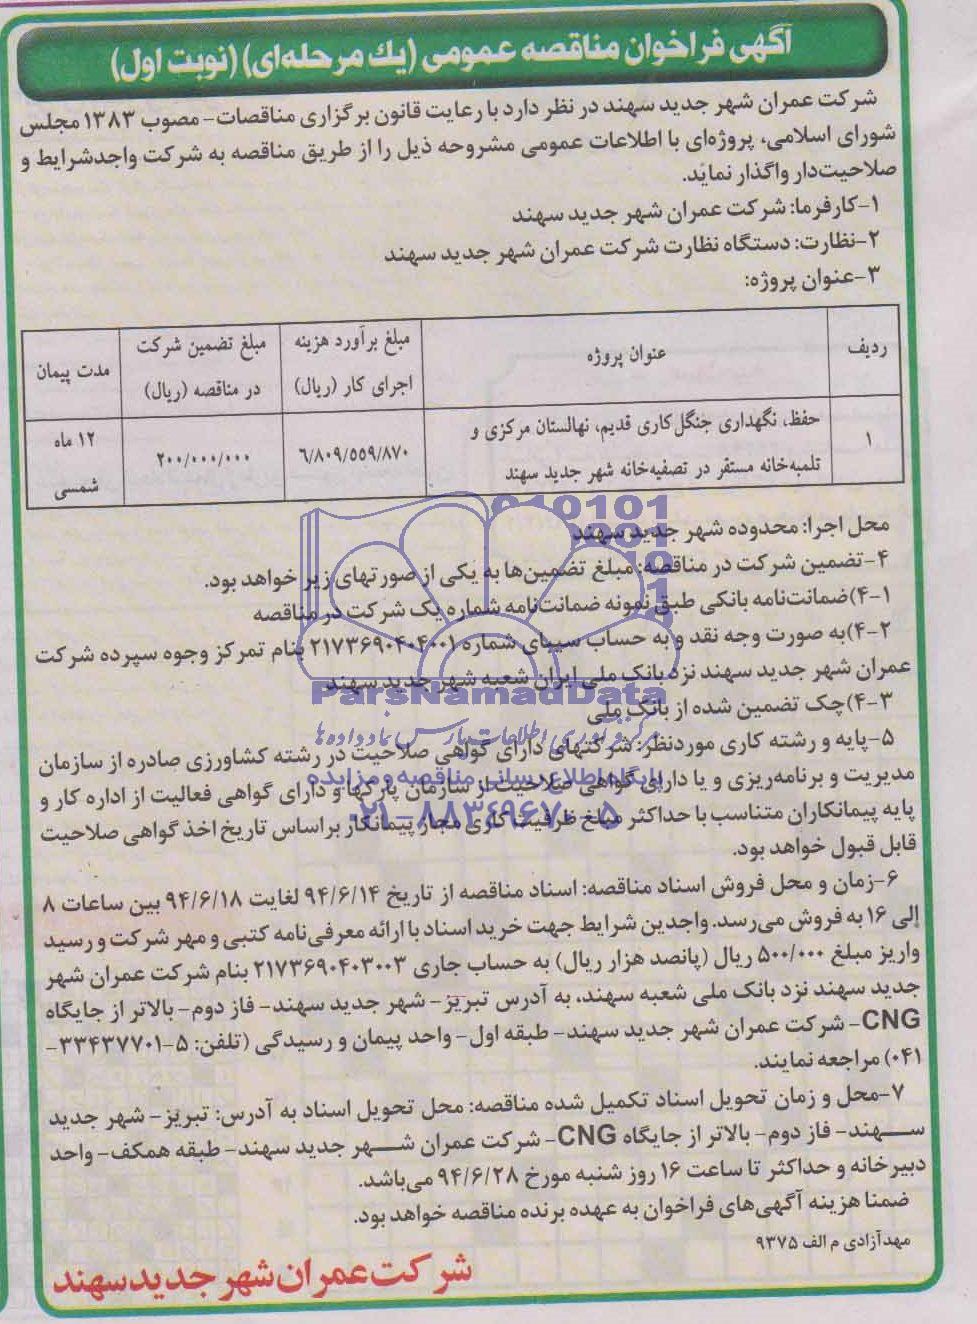 آگهی فراخوان مناقصه عمومی (یك مرحله‌ای) (نوبت اول)
شرکت عمران شهر جدید سهند در نظر دارد با رعایت قانون برگزاری مناقصات- مصوب ۱۳۸۳ مجلس
شورای اسلامی، پروژه‌ای با اطلاعات عمومی مشروحه ذیل را از طریق مناقصه به شرکت واجدشرایط و
صلاحیت‌دار واگذار نماید.
۱-کارفرما: شرکت عمران شهر جدید سهند
۲-نظارت: دستگاه نظارت شرکت عمران شهر جدید سهند
۳-عنوان پروژه:
ردیف
عنوان پروژه
مبلغ برآورد هزینه
اجرای کار (ریال)
مبلغ تضمین شرکت
در مناقصه (ریال)
مدت پیمان
۱
حفظ، نگهداری جنگل کاری قدیم، نهالستان مرکزی و
تلمبه‌خانه مستقر در تصفیه‌خانه شهر جدید سهند
۶/۸۰۹/۵۵۹/۸۷۰
۲۰۰/۰۰۰/۰۰۰
۱۲ ماه
شمسی
محل اجرا: محدوده شهر جدید سهند
۴-تضمین شرکت در مناقصه: مبلغ تضمین‌ها به یکی از صورتهای زیر خواهد بود.
۴-۱)ضمانت‌نامه بانکی طبق نمونه ضمانت‌نامه شماره یک شرکت در مناقصه
۴-۲)به صورت وجه نقد و به حساب سیبای شماره ۲۱۷۳۶۹۰۴۰۴۰۰۱ بنام تمرکز وجوه سپرده شرکت
عمران شهر جدید سهند نزد بانک ملی ایران شعبه شهر جدید سهند
۴-۳)چک تضمین شده از بانک ملی
ParsNamadData
پایگاه اطلاع رسانی مناقصه و مزایده
۰۲۱-۸۸۳۴۹۶۷۰-۵
۵-پایه و رشته کاری موردنظر: شرکتهای دارای گواهی صلاحیت در رشته کشاورزی صادره از سازمان
مدیریت و برنامه‌ریزی و یا دارای گواهی صلاحیت از سازمان پارکها و دارای گواهی فعالیت از اداره کار و
پایه پیمانکاران متناسب با حداکثر مبلغ ظرفیت کاری مجاز پیمانکار براساس تاریخ اخذ گواهی صلاحیت
قابل قبول خواهد بود.
۶-زمان و محل فروش اسناد مناقصه: اسناد مناقصه از تاریخ ۹۴/۶/۱۴ لغایت ۹۴/۶/۱۸ بین ساعات ۸
إلی ۱۶ به فروش می‌رسد. واجدین شرایط جهت خرید اسناد با ارائه معرفی‌نامه کتبی و مهر شرکت و رسید
واریز مبلغ ۵۰۰/۰۰۰ ریال (پانصد هزار ریال) به حساب جاری ۲۱۷۳۶۹۰۴۰۳۰۰۳ بنام شرکت عمران شهر
جدید سهند نزد بانک ملی شعبه سهند، به آدرس تبریز- شهر جدید سهند- فاز دوم- بالاتر از جایگاه
CNG- شرکت عمران شهر جدید سهند- طبقه اول- واحد پیمان و رسیدگی (تلفن: ۵-۳۳۴۳۷۷۰۱-
۰۴۱) مراجعه نمایند.
۷-محل و زمان تحویل اسناد تکمیل شده مناقصه: محل تحویل اسناد به آدرس: تبریز- شهر جدید
سهند- فاز دوم- بالاتر از جایگاه CNG- شرکت عمران شهر جدید سهند- طبقه همکف- واحد
دبیرخانه و حداکثر تا ساعت ۱۶ روز شنبه مورخ ۹۴/۶/۲۸ می‌باشد.
ضمنا هزینه آگهی‌های فراخوان به عهده برنده مناقصه خواهد بود.
مهدآزادی م الف ۹۳۷۵
شرکت عمران شهر جدید سهند